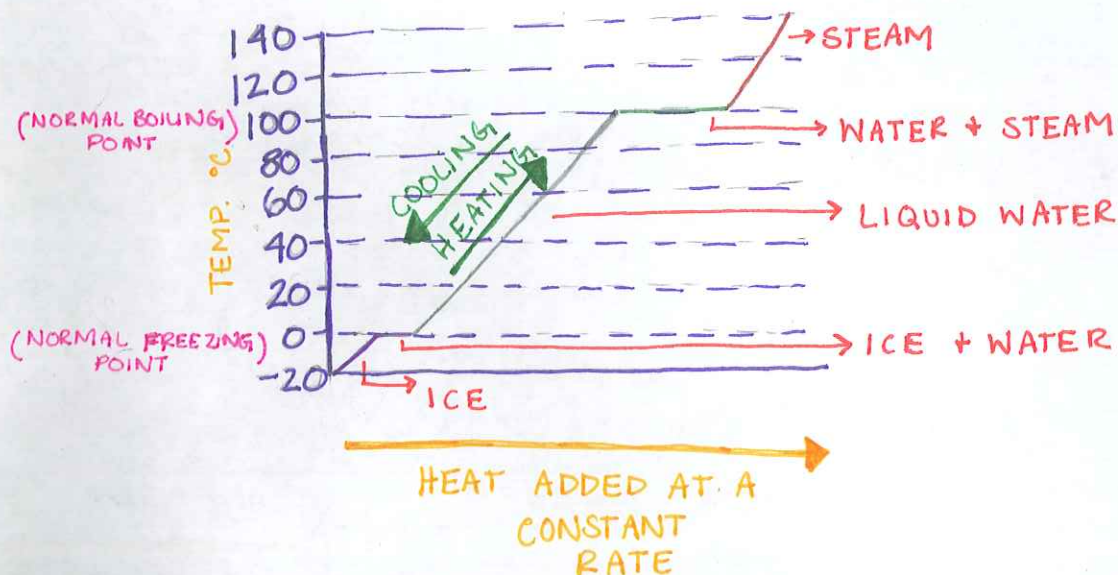 140
120
(NORMAL BOILING POINT) 100
80
60
40
20
(NORMAL FREEZING POINT) 0
-20
TEMP. °C
COOLING
HEATING
→ STEAM
→ WATER + STEAM
→ LIQUID WATER
→ ICE + WATER
→ ICE
HEAT ADDED AT A
CONSTANT
RATE